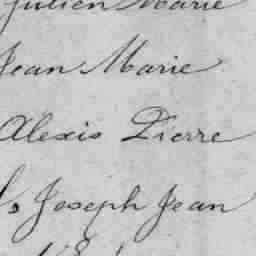 Julien Marie
Jean Marie
Alexis Pierre
Joseph Jean